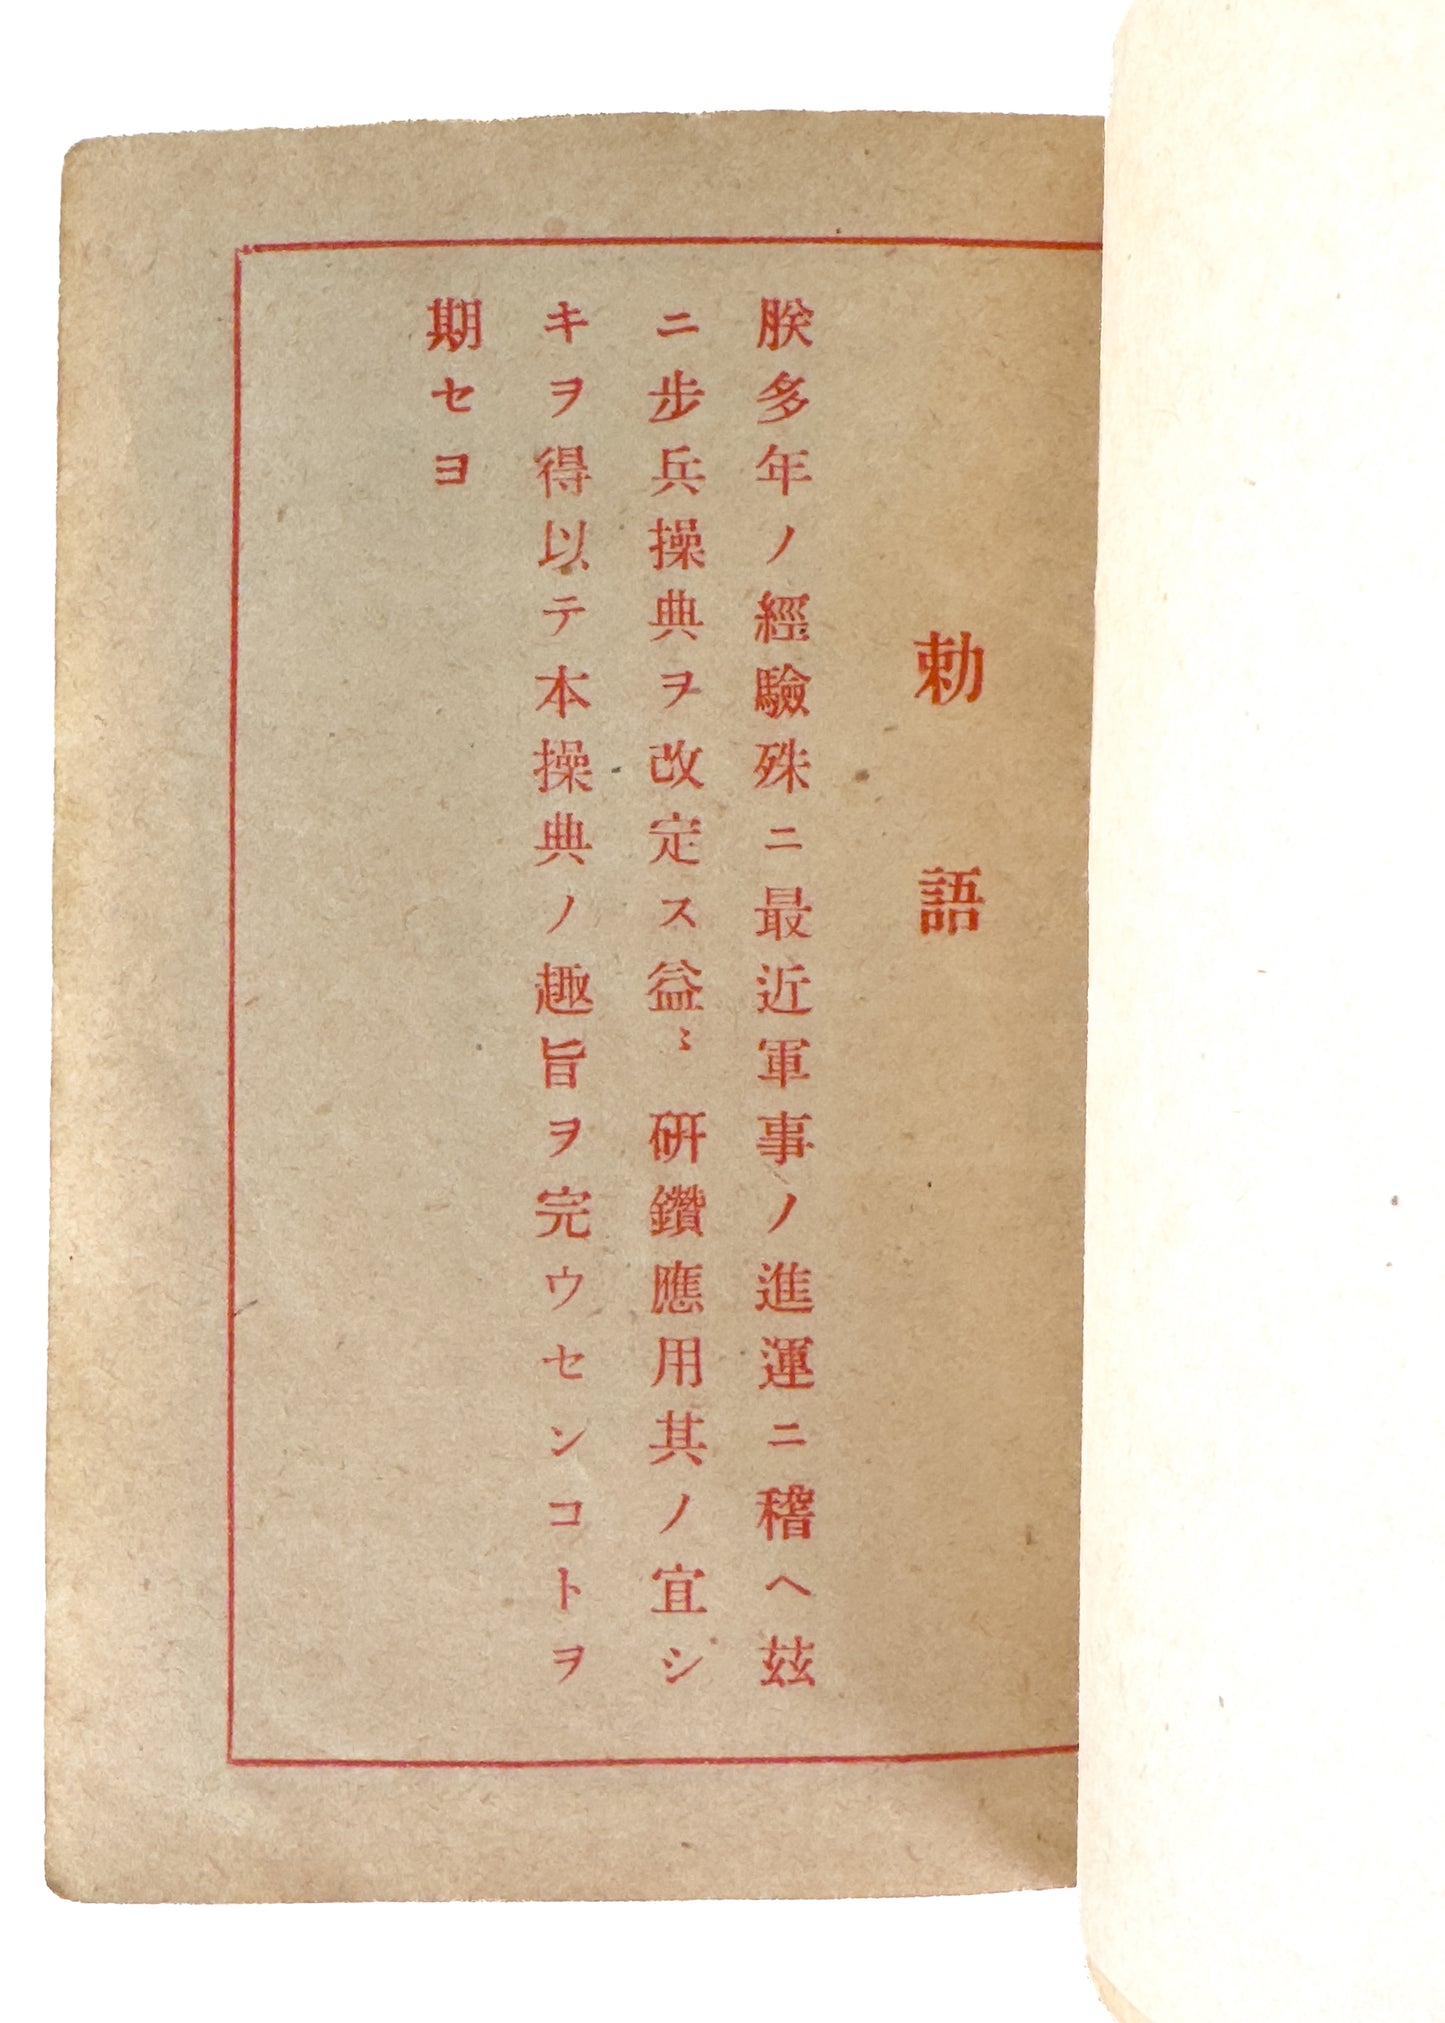 勅語
朕多年ノ經驗殊ニ最近軍事ノ進運ニ稽ヘ玆
ニ步兵操典ヲ改定ス益〻硏鑽應用其ノ宜シ
キヲ得以テ本操典ノ趣旨ヲ完ウセンコトヲ
期セヨ